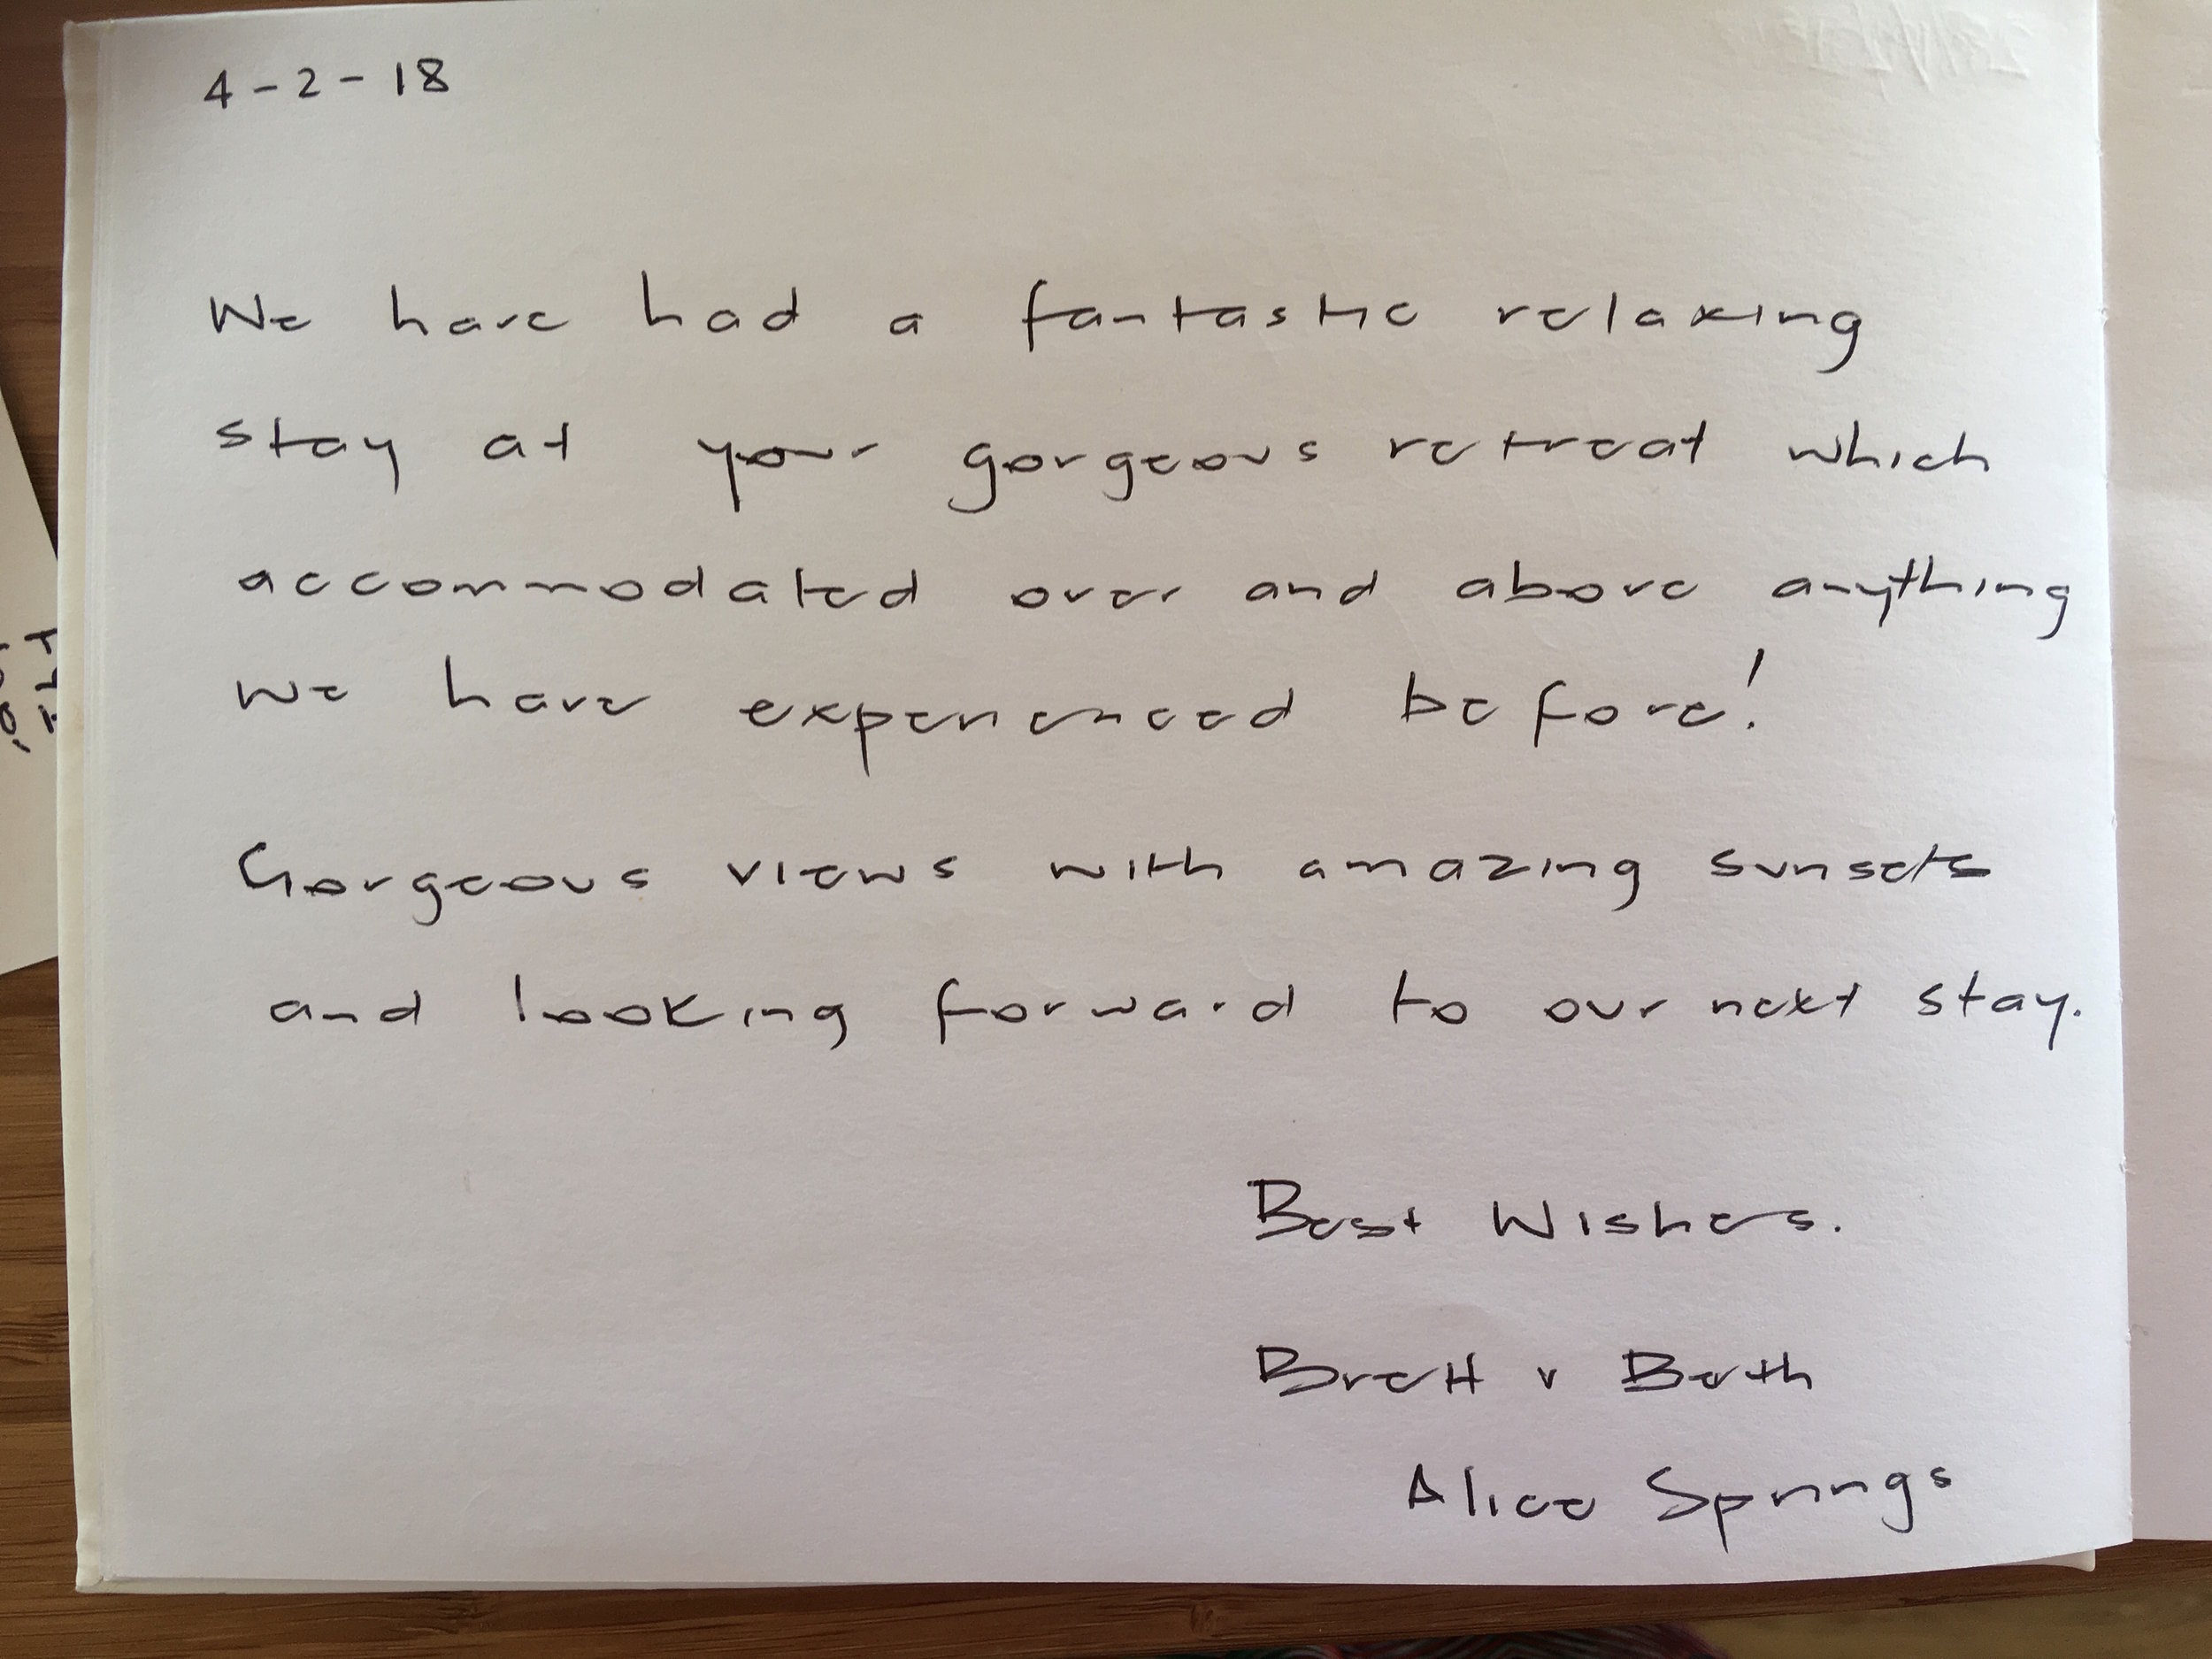 4-2-18
We have had a fantastic relaxing
stay at your gorgeous retreat which
accommodated over and above anything
we have experienced before!
Gorgeous views with amazing sunsets
and looking forward to our next stay.
Best Wishes.
Brett & Beth
Alice Springs